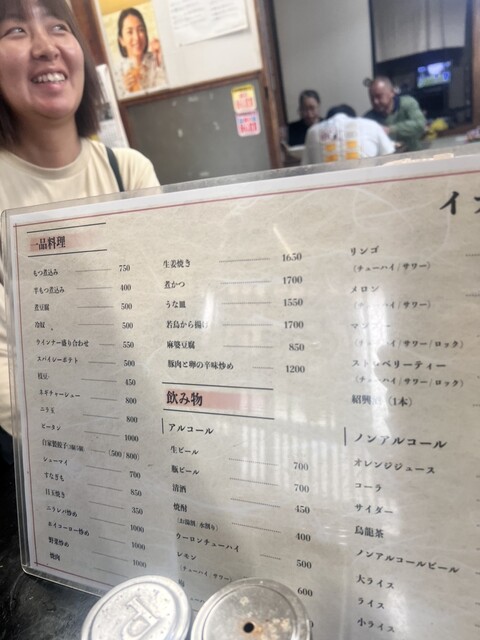 一品料理
もつ煮込み 750
半もつ煮込み 400
煮豆腐 500
冷奴 500
ウインナー盛り合わせ 550
スパイシーポテト 500
枝豆 450
ネギチャーシュー 800
ニラ玉 800
ピータン 1000
自家製餃子 (500/800)
シューマイ 700
すなぎも 850
目玉焼き 350
ニラレバ炒め 1000
ホイコーロー炒め 1000
野菜炒め 1000
焼肉
生姜焼き 1650
煮かつ 1700
うな皿 1550
若鳥から揚げ 1700
麻婆豆腐 850
豚肉と卵の辛味炒め 1200
飲み物
アルコール
生ビール 700
瓶ビール 700
清酒 450
焼酎
(お湯割/水割り) 400
ウーロンチューハイ 500
レモン
(チューハイ/サワー) 600
イ
リンゴ
(チューハイ/サワー)
メロン
(チューハイ/サワー)
マンゴー
(チューハイ/サワー/ロック)
ストロベリーティー
(チューハイ/サワー/ロック)
紹興酒 (1本)
ノンアルコール
オレンジジュース
コーラ
サイダー
烏龍茶
ノンアルコールビール
大ライス
ライス
小ライス